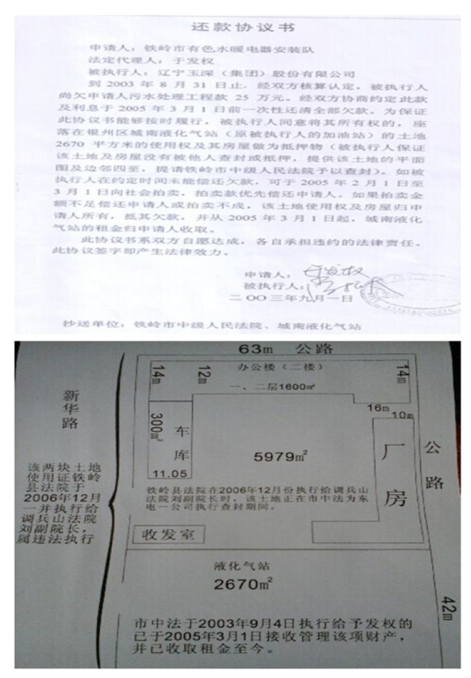 还款协议书
申请人：铁岭市有色水暖电器安装队
法定代理人：于发权
被执行人：辽宁玉深（集团）股份有限公司
到 2003 年 8 月 31 日止，经双方核算认定，被执行人
尚欠申请人污水处理工程款 25 万元。经双方协商约定此款
及利息于 2005 年 3 月 1 日前一次性还清全部欠款。为保证
此协议书能够按时履行，被执行人同意将其所有权的，座
落在银州区城南液化气站（原被执行人的加油站）的土地
2670 平方米的使用权及其房屋做为抵押物（被执行人保证
该土地及房屋没有被他人查封或抵押，提供该土地的平面
图及边邻四至，提请铁岭市中级人民法院予以查封）。如被
执行人在约定时间未能偿还欠款，可于 2005 年 2 月 1 日至
3 月 1 日向社会拍卖，拍卖款优先偿还申请人，如果拍卖金
额不足偿还申请人或拍卖不成，该土地使用权及房屋归申
请人所有，抵其欠款，并从 2005 年 3 月 1 日起，城南液化
气站的租金归申请人收取。
此协议书系双方自愿达成，各自承担违约的法律责任。
此协议签字即产生法律效力。
申请人：于发权
被执行人：
二 OO 三年九月一日
抄送单位：铁岭市中级人民法院、城南液化气站
63m 公路
14m
12m
办公楼（二楼）
14m
一、二层1600㎡
16m
10m
新华路
300㎡
车库
11.05
5979㎡
厂房
公路
该两块土地
使用证铁岭
县法院于
2006年12月
一并执行给
调兵山法院
刘副院长，
属违法执行
铁岭县法院在2006年12月份执行给调兵山
法院刘副院长时，该土地正在市中法为东
电一公司执行查封期间。
收发室
液化气站
2670㎡
42m
市中法于2003年9月4日执行给予发权的
已于2005年3月1日接收管理该项财产，
并已收取租金至今。